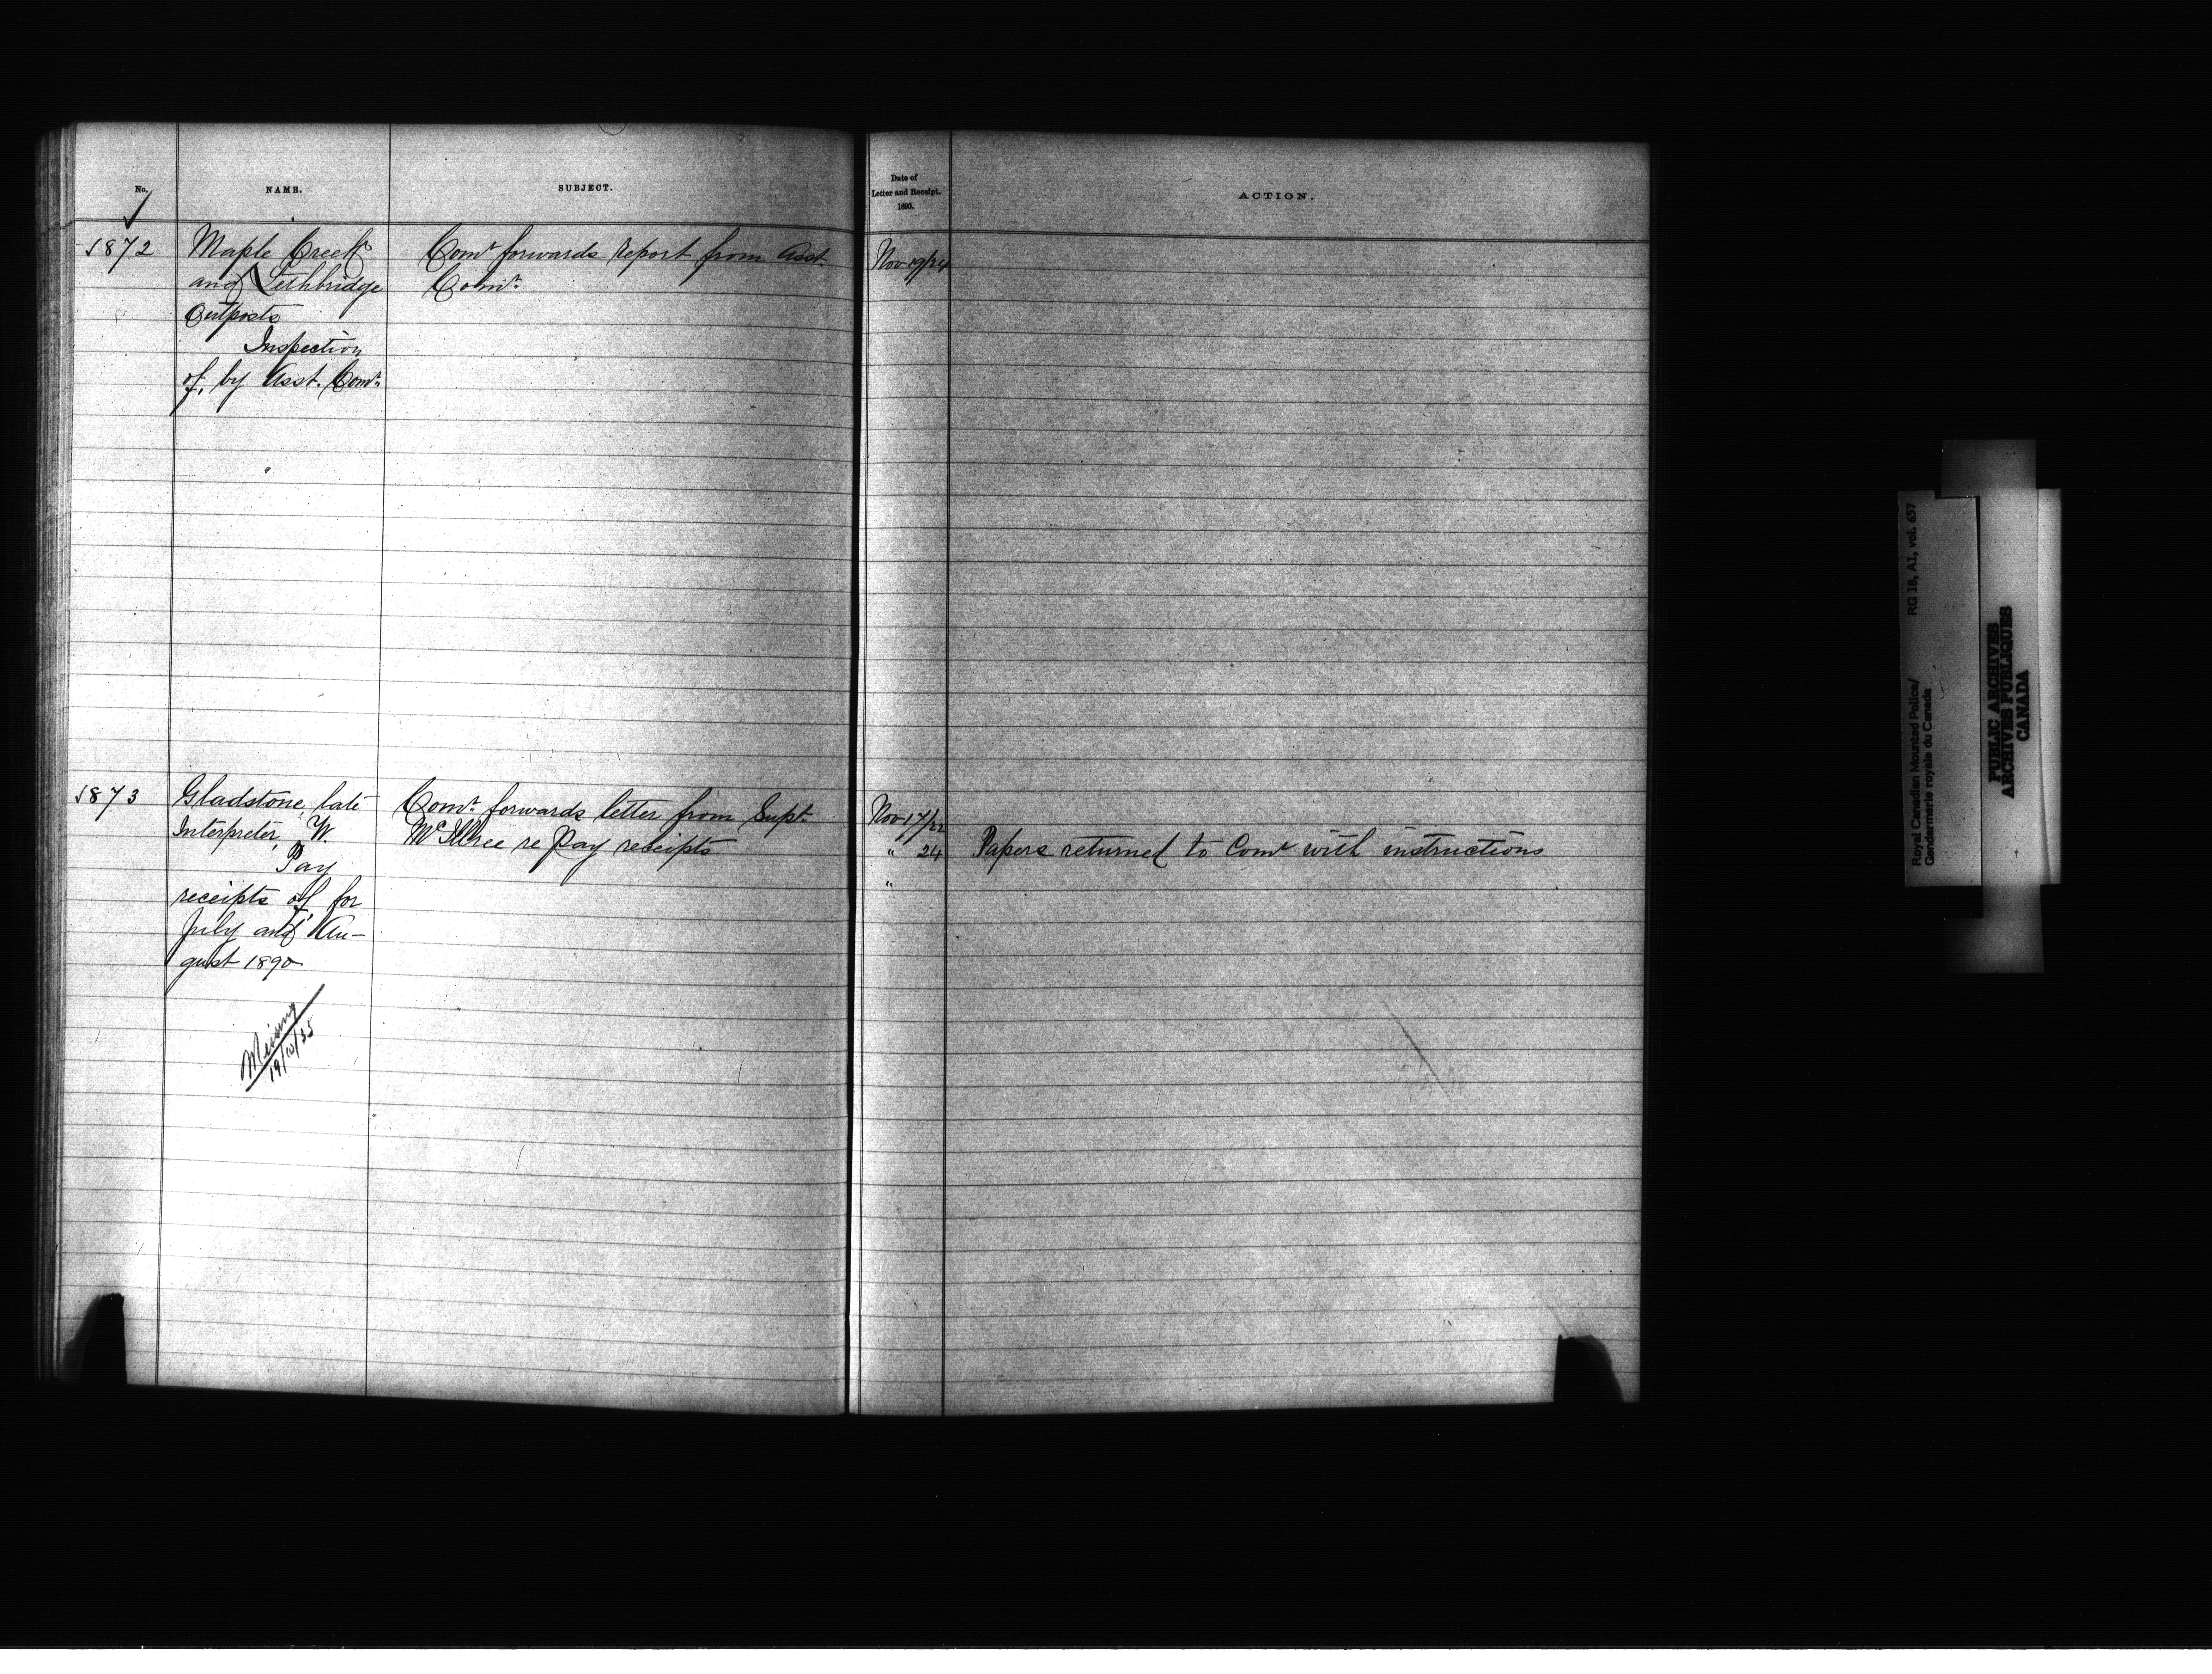 No.
NAME.
SUBJECT.
Date of
Letter and Receipt.
1890.
ACTION.
1872
Maple Creek
and Lethbridge
Outposts
Inspection
of, by Asst. Comr.
Comr forwards report from Asst.
Comr.
Nov 19/24
1873
Gladstone, late
Interpreter, W.
Pay
receipts of for
July and Au-
gust 1890
Missing
19/10/35
Comr. forwards letter from Supt.
McIllree re Pay receipts
Nov 17/22
" 24
Papers returned to Comr with instructions
"
Royal Canadian Mounted Police/
Gendarmerie royale du Canada
RG 18, A1, vol. 657
PUBLIC ARCHIVES
ARCHIVES PUBLIQUES
CANADA